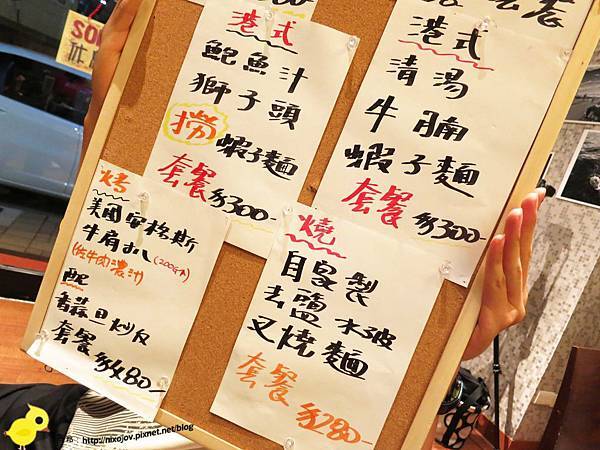 港式
鮑魚汁
獅子頭
撈 蝦子麵
套餐 $300-
港式
清湯
牛腩
蝦子麵
套餐 $300-
烤
美國安格斯
牛肩扒 (200g↑)
(佐牛肉濃汁)
配
香蒜旦炒反
套餐 $480-
燒
自家製
去鹽水破
叉燒麵
套餐 $280-
http://nixojov.pixnet.net/blog